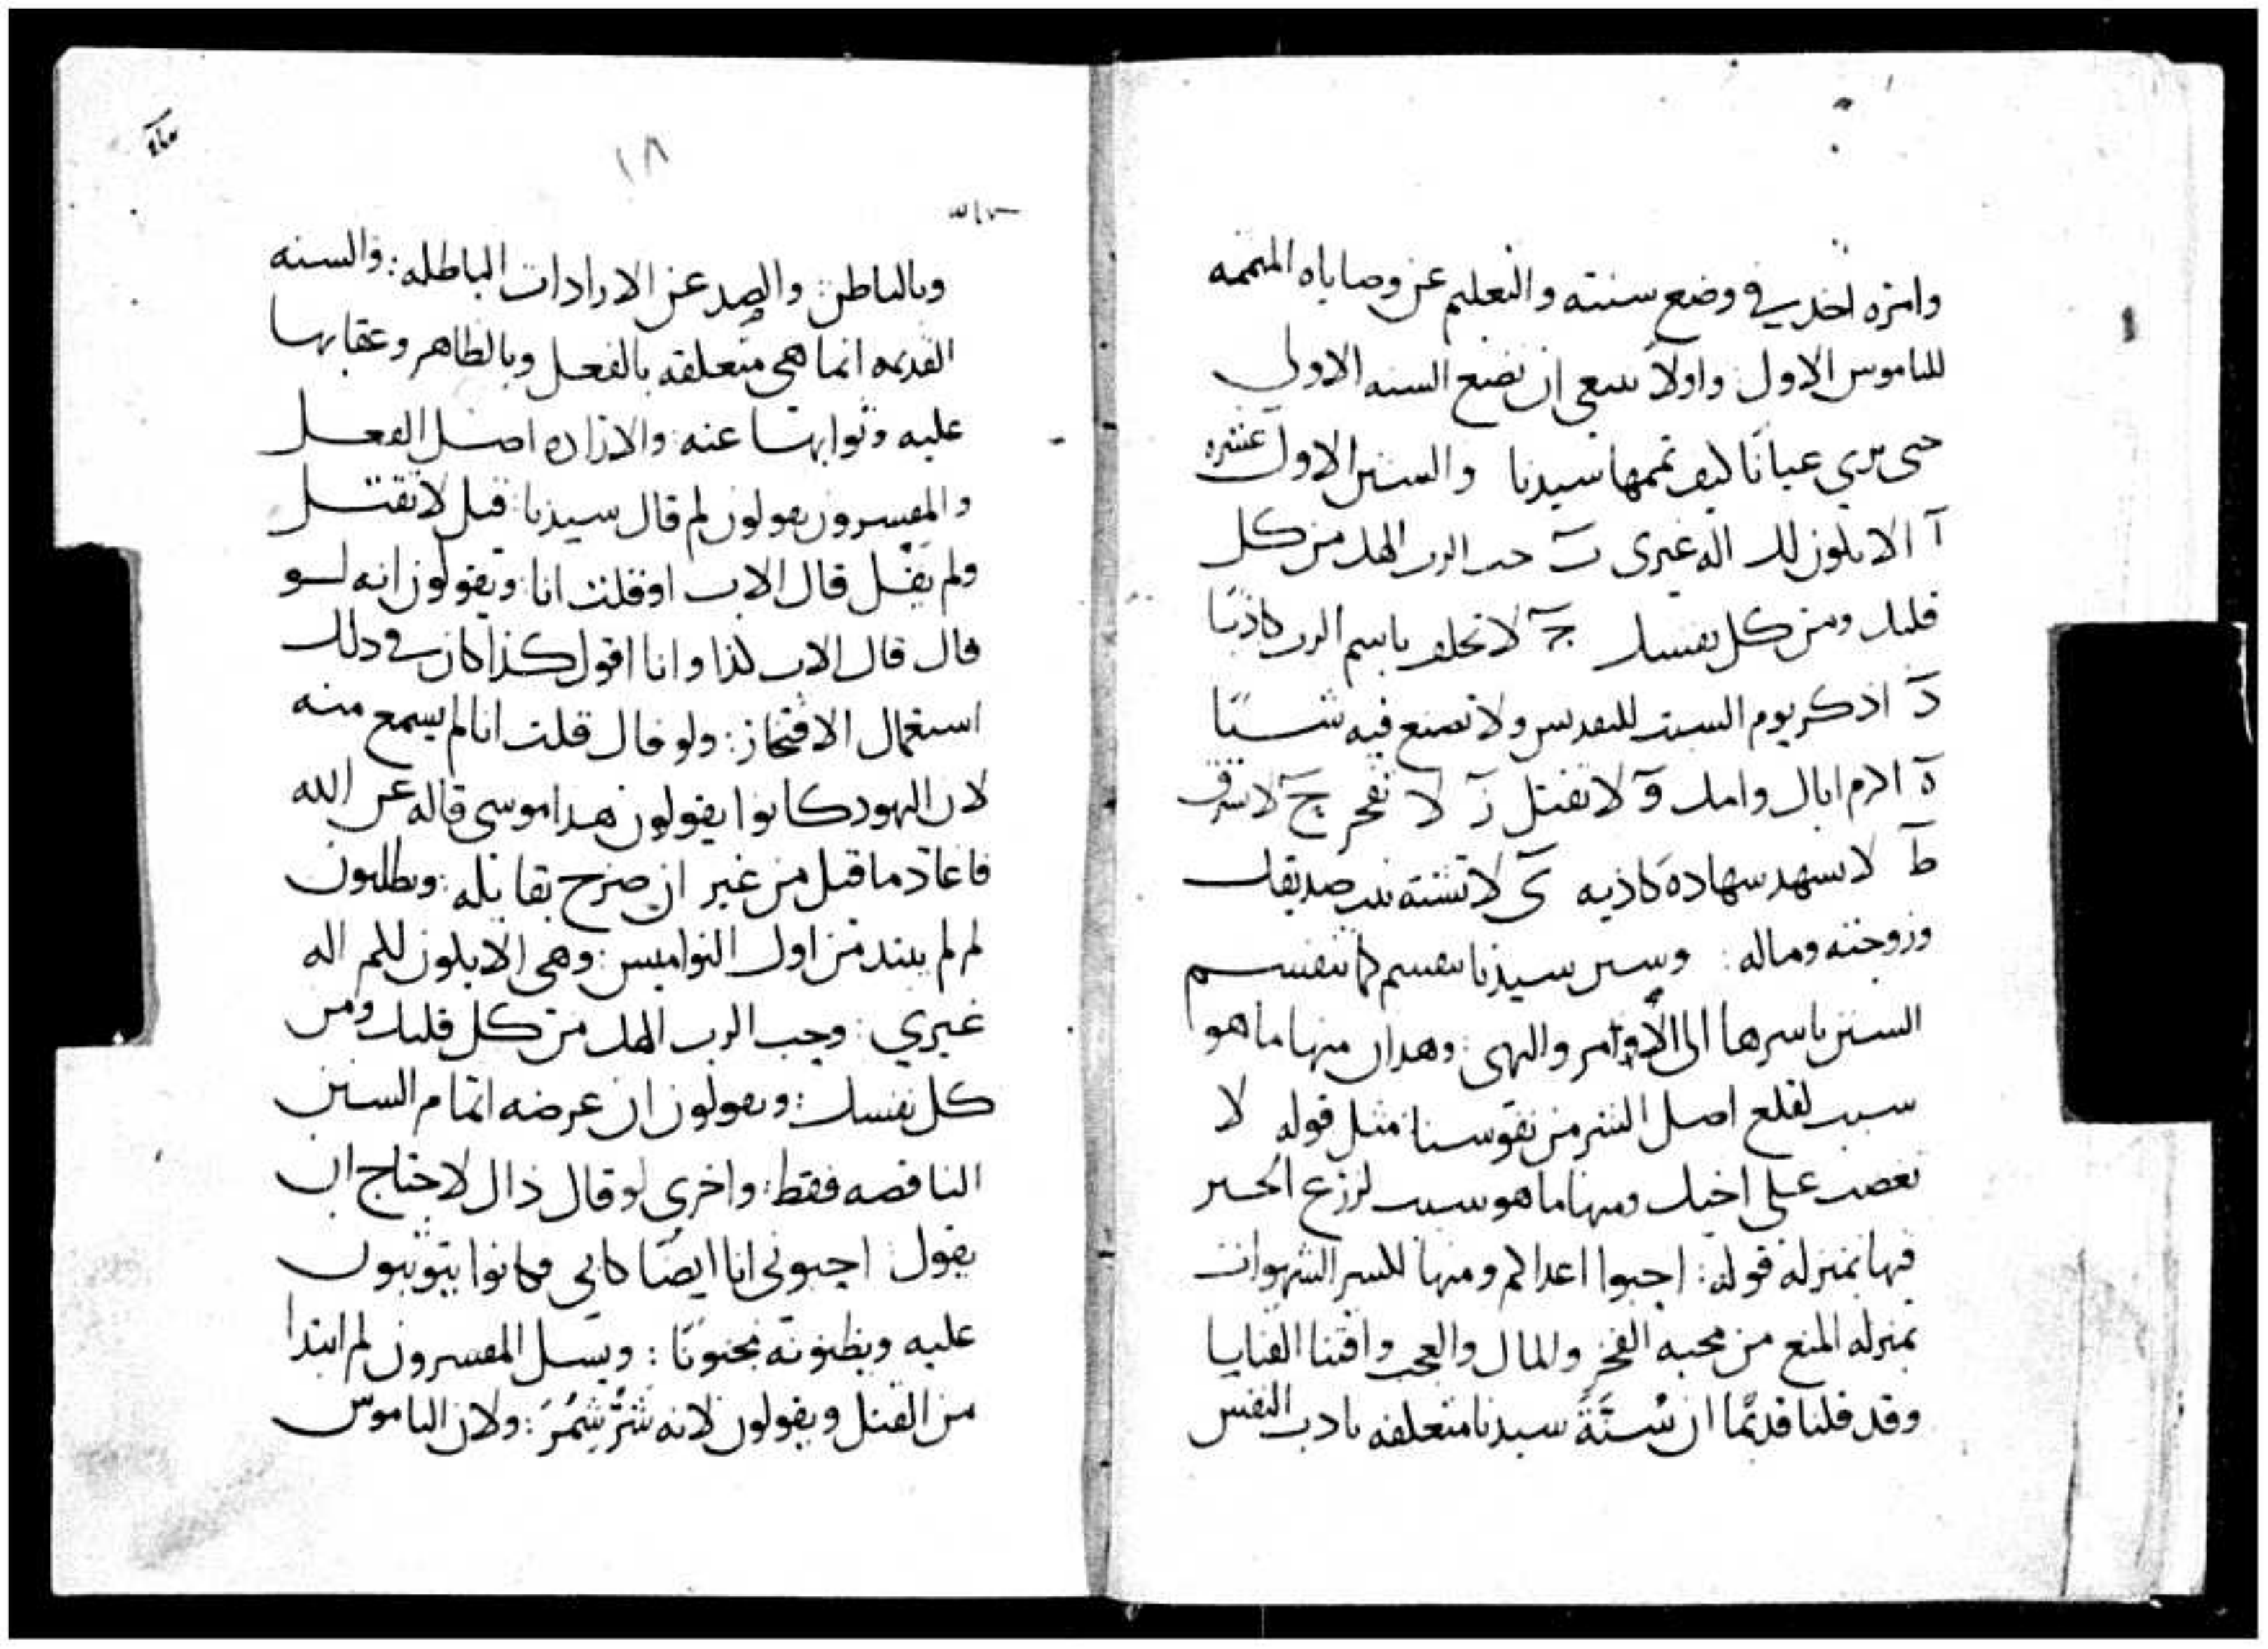 وامره اخذ في وضع سنته والتعليم عن وصاياه المتممه
للناموس الاول واولاً ينبغي ان نضع السنه الاولي
حتى يري عيانًا كيف تممها سيدنا والسنن الاول عشره
آ الا يكون لك اله غيري بَ حب الرب الهك من كل
قلبك ومن كل نفسك جَ لا تحلف باسم الرب كاذبًا
دَ اذكر يوم السبت للتقديس ولا تصنع فيه شيئًا
هَ اكرم اباك وامك وَ لا تقتل زَ لا تفجر حَ لا تسرق
طَ لا تشهد شهادة كاذبه يَ لا تشته بيت صديقك
وزوجته وماله : وسنن سيدنا تنقسم كما تنقسم
السنن باسرها الى الأوامر والنهي : وهذان منها ما هو
سبب لقلع اصل الشر من نفوسنا مثل قوله لا
تغضب على اخيك ومنها ما هو سبب لزرع الخير
فيها بمنزلة قوله : احبوا اعداكم ومنها لكسر الشهوات
بمنزله المنع من محبه الفخر والمال والعجب واقتنا القنايا
وقد قلنا قديمًا ان سُنَّةَ سيدنا متعلقه بادب النفس
١٨
وبالباطن : والصد عن الارادات الباطله : والسنه
القديمه انما هي متعلقه بالفعل وبالظاهر وعقابها
عليه وثوابها عنه والاراده اصل الفعل
والمفسرون يقولون لم قال سيدنا قيل لا تقتل
ولم يقل قال الاب او قلت انا ويقولون انه لو
قال قال الاب كذا وانا اقول كذا كان في ذلك
استعمال الافتخار : ولو قال قلت انا لم يسمع منه
لان اليهود كانوا يقولون هذا موسى قاله عن الله
فاعاد ما قيل من غير ان صرح بقايله : ويطلبون
لم لم يبتد من اول النواميس : وهي الا يكون لكم اله
غيري : وحب الرب الهك من كل قلبك ومن
كل نفسك : ويقولون ان غرضه اتمام السنن
الناقصه فقط : واخري لو قال ذاك لاحتاج ان
يقول احبوني انا ايضًا كابي فكانوا يتوثبون
عليه ويظنونه مجنونًا : ويسل المفسرون لم ابتدا
من القتل ويقولون لانه شرٌ شِمُرّ : ولان الناموس